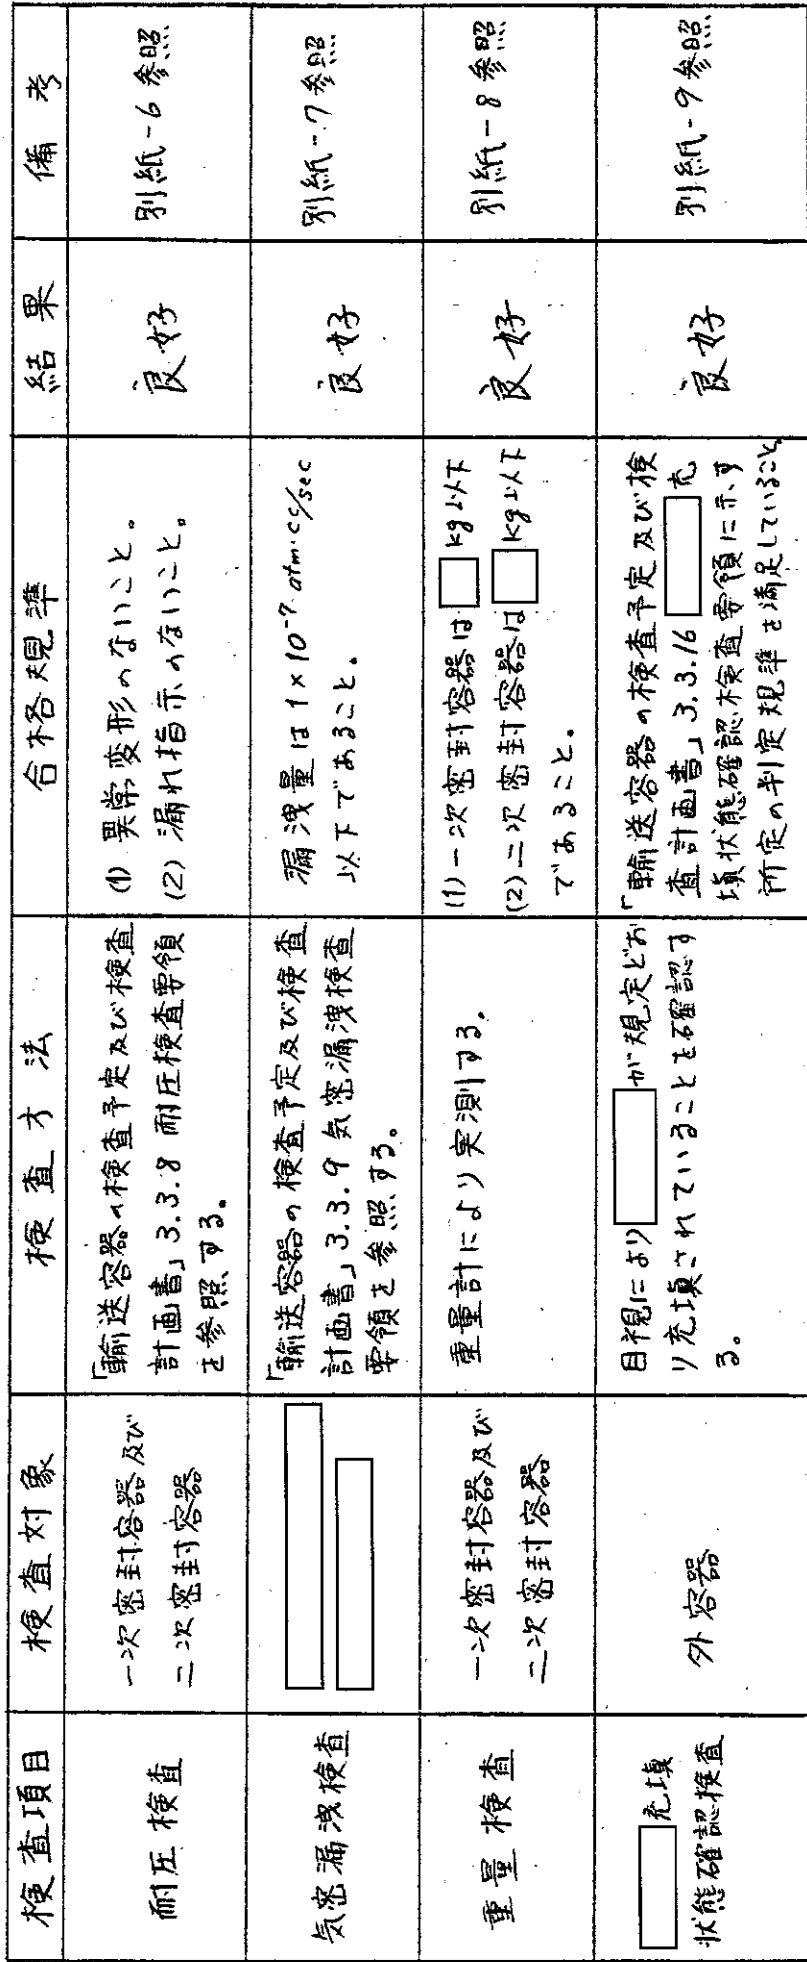 検査項目
検査対象
検査方法
合格規準
結果
備考
耐圧検査
一次密封容器及び
二次密封容器
「輸送容器の検査予定及び検査
計画書」3.3.8 耐圧検査要領
を参照する。
(1) 異常変形のないこと。
(2) 漏れ指示のないこと。
良好
別紙-6参照
気密漏洩検査
「輸送容器の検査予定及び検査
計画書」3.3.9 気密漏洩検査
要領を参照する。
漏洩量は1×10⁻⁷ atm·cc/sec
以下であること。
良好
別紙-7参照
重量検査
一次密封容器及び
二次密封容器
重量計により実測する。
(1) 一次密封容器は kg以下
(2) 二次密封容器は kg以下
であること。
良好
別紙-8参照
充填
状態確認検査
外容器
目視により が規定どお
り充填されていることを確認す
る。
「輸送容器の検査予定及び検
査計画書」3.3.16 充
填状態確認検査要領に示す
所定の判定規準を満足していること
良好
別紙-9参照